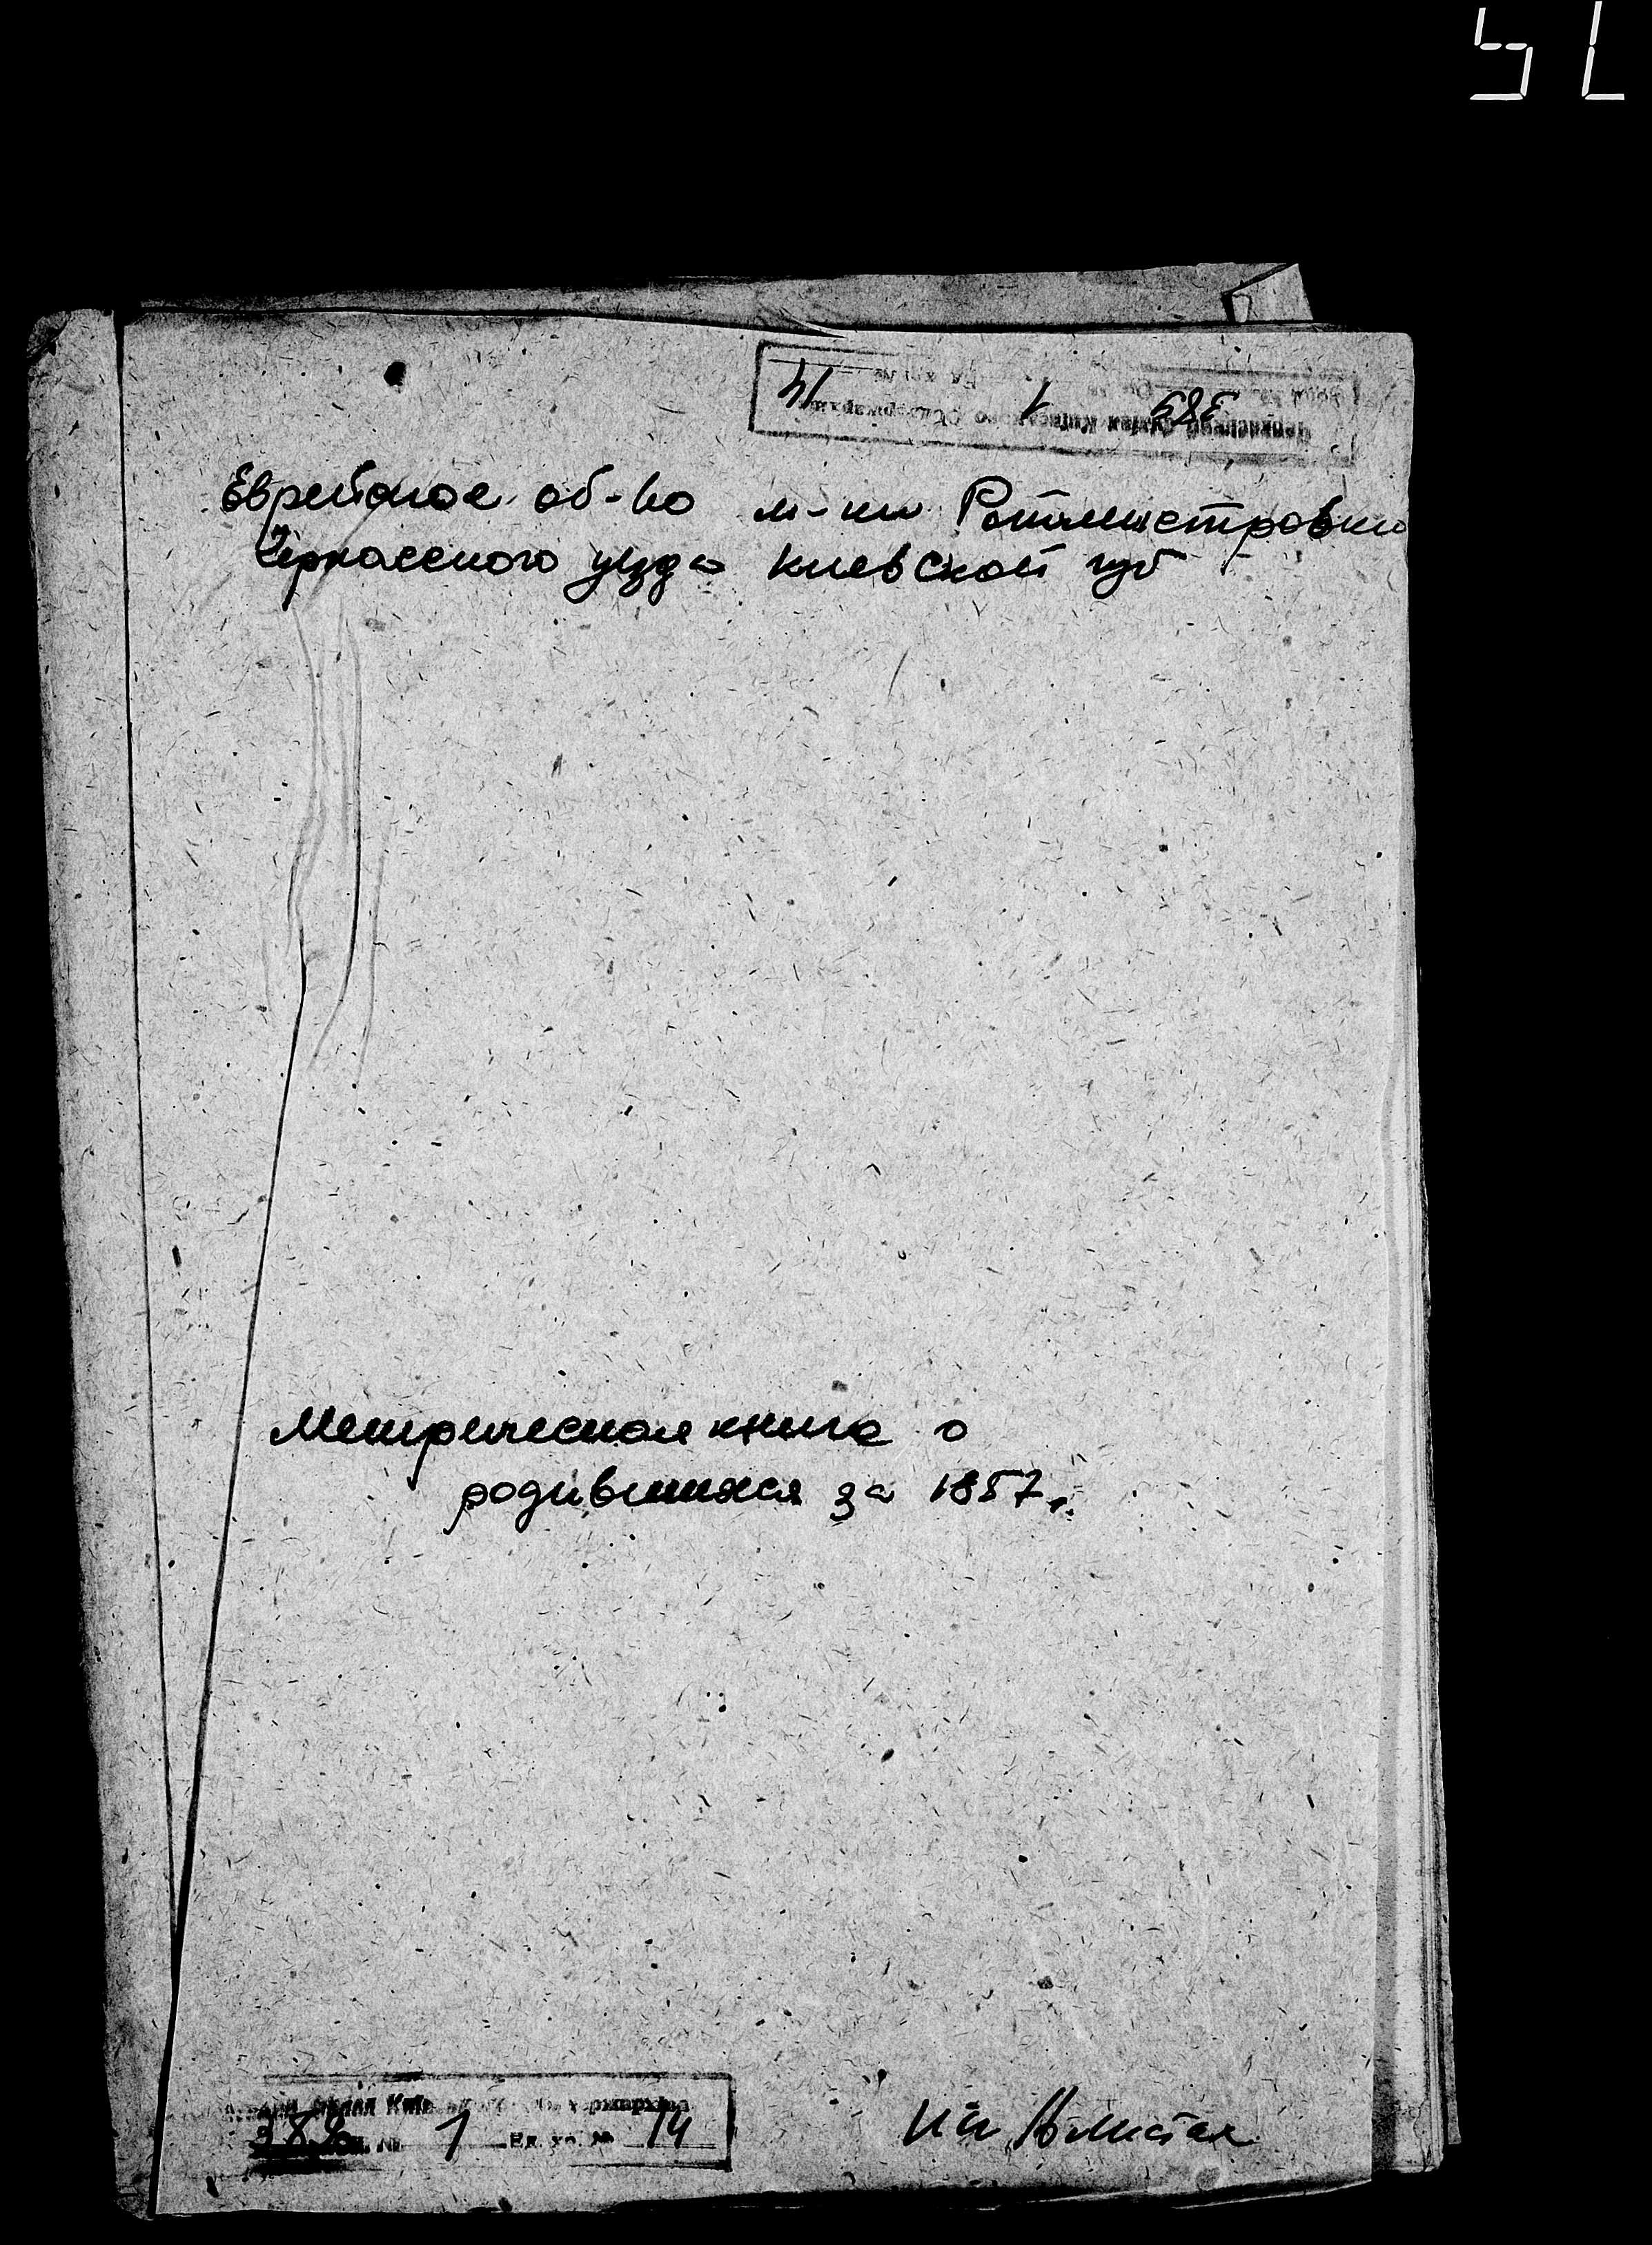 Еврейское об-во м-ки Ротмистровки
Черкасского уезда Киевской губ
Метрическая книга о
родившихся за 1857 г.
389 1 Ед. хр. № 14
листах